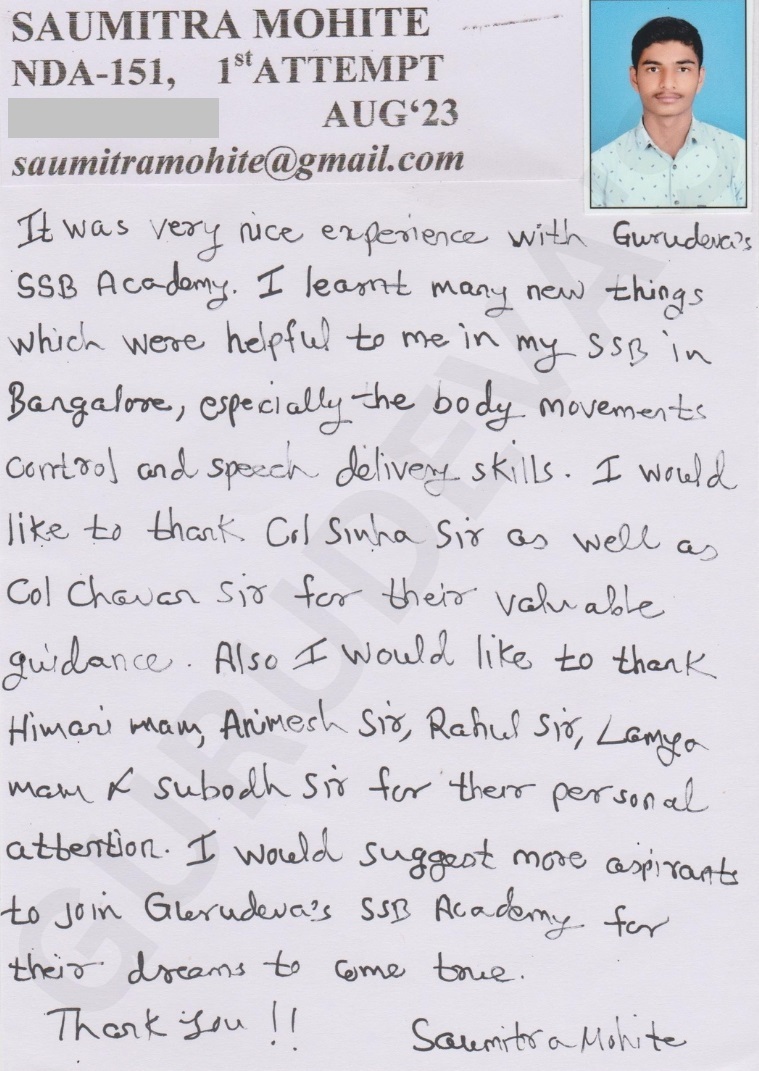 SAUMITRA MOHITE
NDA-151, 1st ATTEMPT
AUG‘23
saumitramohite@gmail.com
It was very nice experience with Gurudeva's
SSB Academy. I learnt many new things
which were helpful to me in my SSB in
Bangalore, especially the body movements
control and speech delivery skills. I would
like to thank Col Sinha Sir as well as
Col Chavan Sir for their valuable
guidance. Also I would like to thank
Himari mam, Animesh Sir, Rahul Sir, Lamya
mam & Subodh Sir for their personal
attention. I would suggest more aspirants
to join Gurudeva's SSB Academy for
their dreams to come true.
Thank You !!
Saumitra Mohite
GURUDEVA